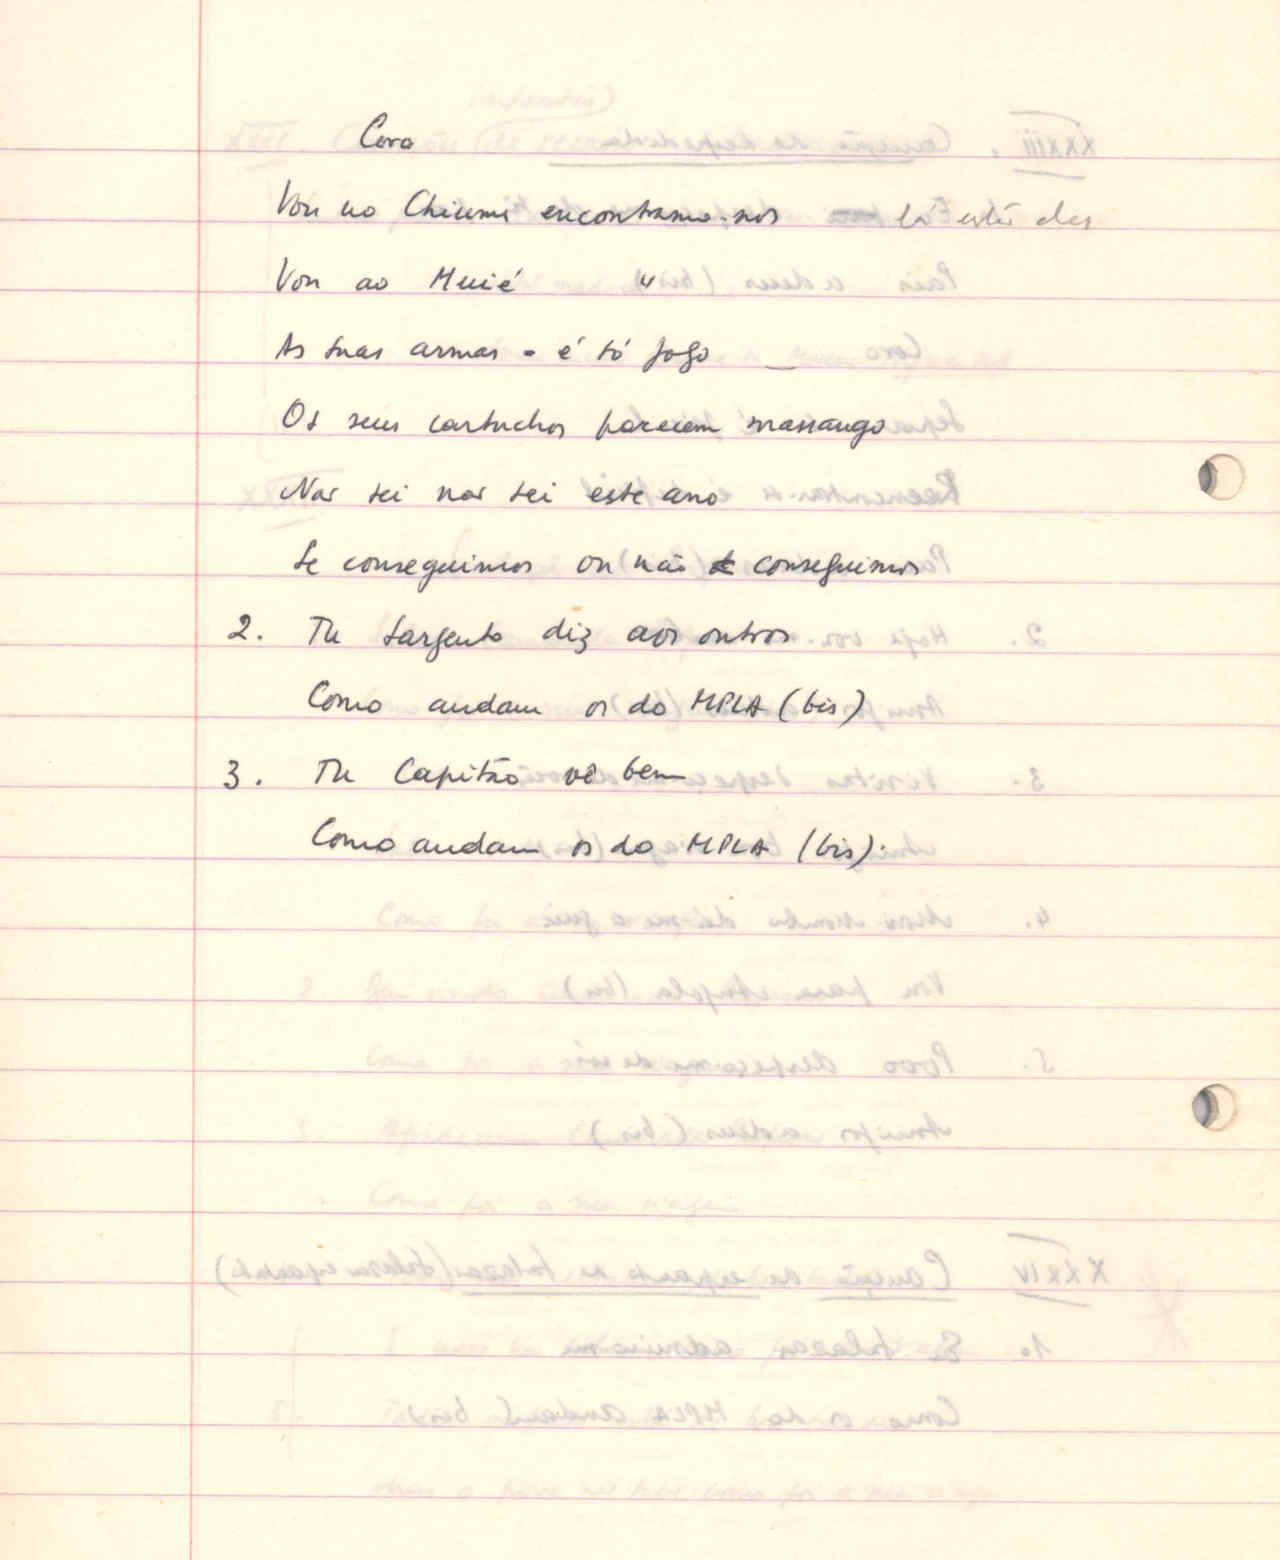 Coro
Vou no Chiume encontramo-nos lá estão eles
Vou ao Muié "
As suas armas - é só fogo
Os seus cartuchos parecem massango
Nas sei nas sei este ano
Se conseguimos ou não conseguimos
2. Tu Sargento diz aos outros
Como andam os do MPLA (bis)
3. Tu Capitão vê bem
Como andam os do MPLA (bis).